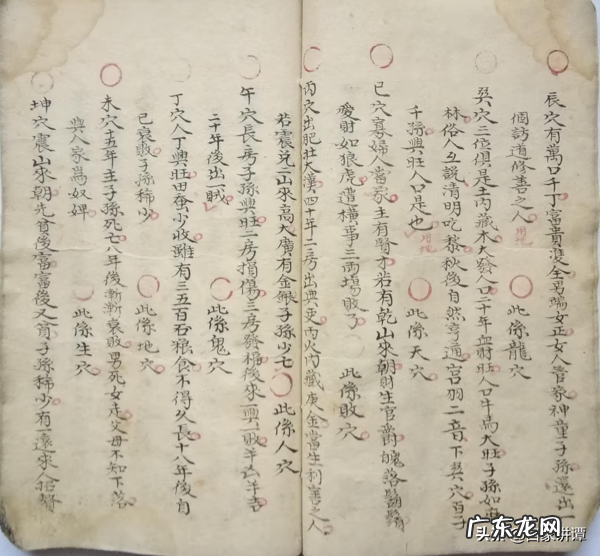 辰穴有萬口千丁富貴雙全男端女正女人管家神童子孫還出一
個訪道修善之人 此係龍穴
巽穴三位俱是土内藏木大發人口二十年血財旺人口牛馬大旺子孫如
林俗人立説清明吃 秋後自然亨通宫羽二音下巽穴百子
千孫興旺人口是也 此係天穴
巳穴寡婦人當家主有賢才若有乾山來朝財生官爵
愛財如狼虎遭横事三兩場敗了 此係敗穴
丙穴出肥壯大漢四十年二房出興吏丙火内藏庚金當生利害之人
若震兑二山來高大廣有金銀子孫少亡 此係人穴
午穴長房子孫興旺二房損傷三房發福後來一興一敗半吉
二十年後出一賊 此係鬼穴
丁穴人丁興旺田蚕少收雖有三五百石粮食不得久長十八年後自
己衰敗子孫稀少 此係地穴
未穴十五年主子孫死亡八年後漸漸衰敗男死女走父母不知下落
與人家爲奴婢 此係生穴
坤穴震山來朝先貧後富富後又貧子孫稀少有一遠來人招
广东龙网
头条
百家讲谭